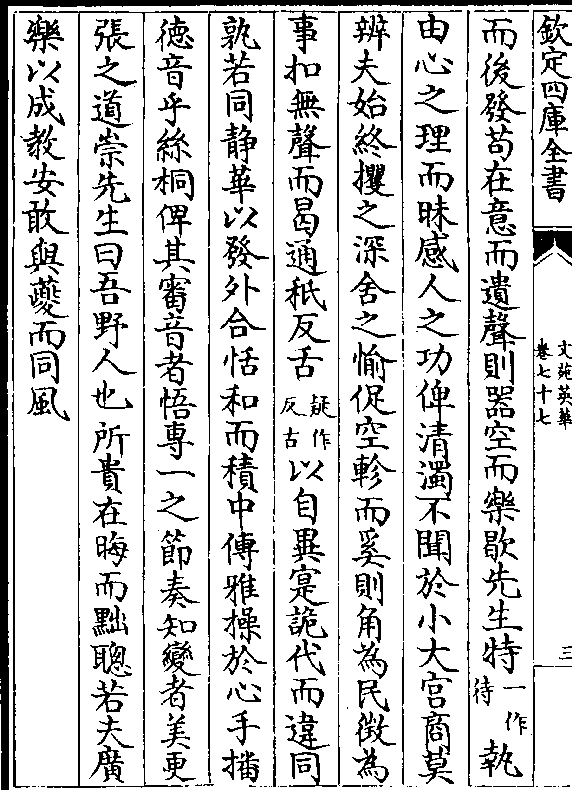 欽定四庫全書
文苑英華
卷七十七
三
而後發苟在意而遺聲則器空而樂歇先生特一作待執
由心之理而昧感人之功俾清濁不聞於小大宮商莫
辨夫始終攫之深舍之愉促空軫而奚則角為民徴為
事扣無聲而曷通秖反舌疑作反古以自異寔詭代而違同
孰若同静華以發外合恬和而積中傳雅操於心手播
徳音乎絲桐俾其審音者悟專一之節奏知變者美更
張之道崇先生曰吾野人也所貴在晦而黜聰若夫廣
樂以成教安敢與蘷而同風